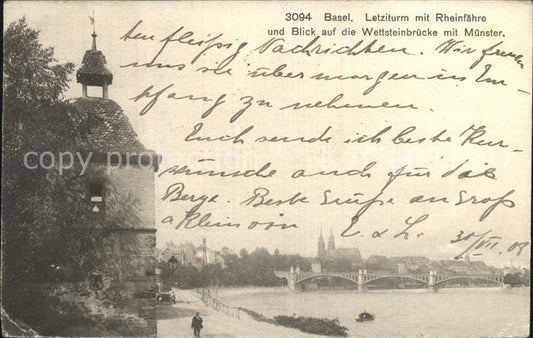 3094 Basel. Letziturm mit Rheinfähre
und Blick auf die Wettsteinbrücke mit Münster.
ten fleißig Nachrichten. Wir freuen
uns sie übermorgen in Em-
pfang zu nehmen.
Euch sende ich beste Kur-
wünsche auch für das
Berge. Beste Grüße an Groß
& Klein von E. & L.
30/VII. 08
copy